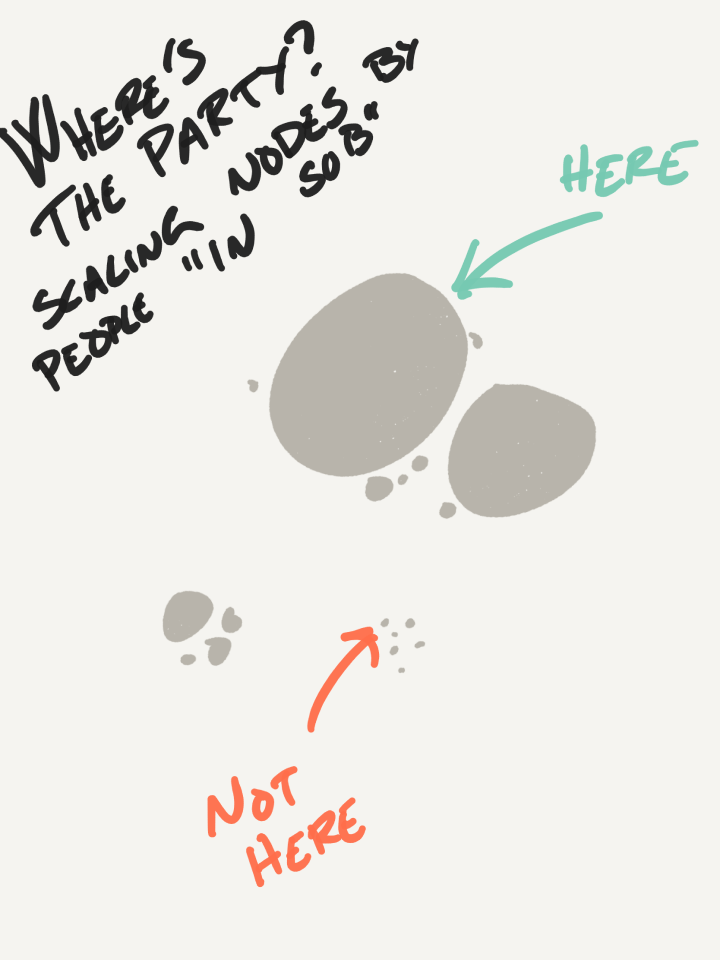 WHERE'S
THE PARTY?
SCALING NODES BY
PEOPLE "IN SOB"
HERE
NOT
HERE